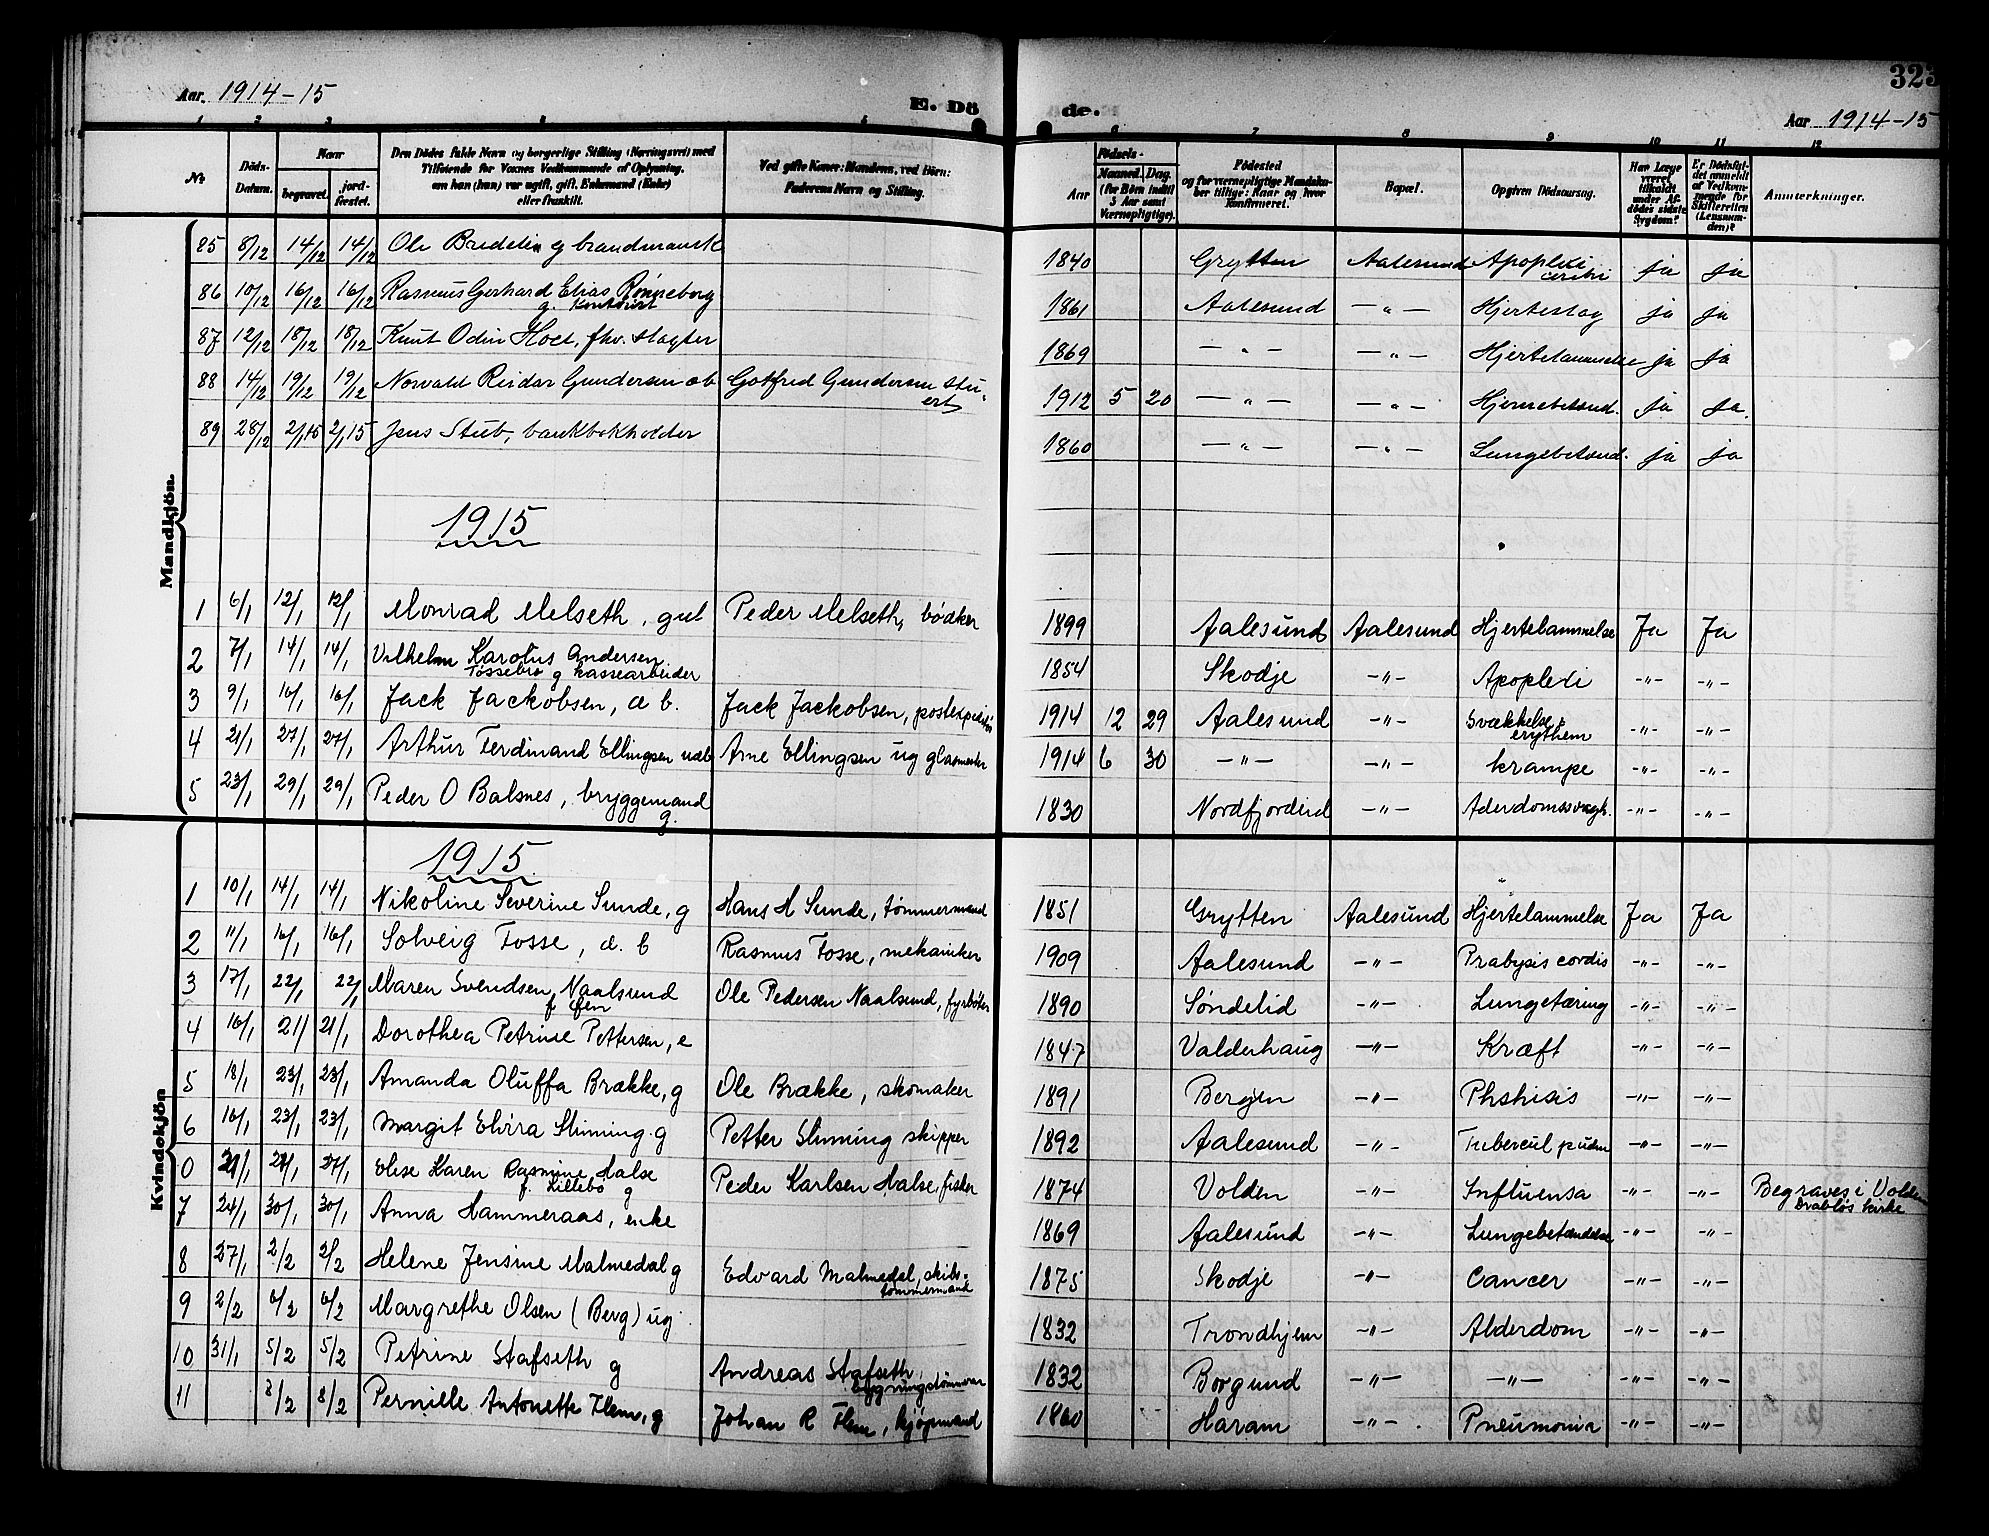 323
Aar. 1914-15
E. Dö
de.
Aar 1914-15
1 2 3 4 5 6 7 8 9 10 11 12
No Döds-Datum. Naar begravet. jord-fæstet. Den Dödes fulde Navn og borgerlige Stilling (Næringsvei) med Tilföiende for Voxnes Vedkommende af Oplysning, om han (hun) var ugift, gift, Enkemand (Enke) eller fraskilt. Ved gifte Koner: Mandens, ved Börn: Faderens Navn og Stilling. Födsels- Aar Maaned. Dag. (for Börn indtil 3 Aar samt Værnepligtige). Födested og for værnepligtige Mandskaber tillige: Naar og hvor konfirmeret. Bopæl. Opgiven Dödsaarsag. Har Læge været tilkaldt under Afdödes sidste Sygdom? Er Dödsfaldet anmeldt af Vedkommende for Skifteretten (Lensmanden)? Anmærkninger.
Mandkjön.
85 8/12 14/12 14/12 Ole Bredeli g brandmansk 1840 Grytten Aalesund Apoplexi cerebri ja ja
86 10/12 16/12 16/12 Rasmus Gerhard Elias Rønneberg g. Kontorist 1861 Aalesund -"- Hjerteslag ja ja
87 12/12 18/12 18/12 Knut Odin Hoel, fhv. slagter 1869 -"- -"- Hjertelammelse ja ja
88 14/12 19/12 19/12 Norvald Reidar Gundersen ab Gotfred Gundersen stuert 1912 5 20 -"- -"- Hjernebetænd. ja ja.
89 28/12 2/1 15 2/1 15 Jens Stub, bankbokholder 1860 -"- -"- Lungebetænd. ja ja
1915
1 6/1 12/1 12/1 Monrad Melseth, gut Peder Melseth, bødker 1899 Aalesund Aalesund Hjertelammelse Ja Ja
2 7/1 14/1 14/1 Vilhelm Karolus Andersen Tossebro g kassearbeider 1854 Skodje -"- Apoplexi -"- -"-
3 9/1 16/1 16/1 Jack Jackobsen, a b. Jack Jackobsen, postexpeditør 1914 12 29 Aalesund -"- Svækkelse & erythem -"- -"-
4 21/1 27/1 27/1 Arthur Ferdinand Ellingsen uab Arne Ellingsen ug glasmester 1914 6 30 -"- -"- krampe -"- -"-
5 23/1 29/1 29/1 Peder O Balsnes, bryggemand g. 1830 Nordfjordeid -"- Alderdomssvagh. -"- -"-
Kvindekjön
1915.
1 10/1 14/1 14/1 Nikoline Severine Sunde, g Hans H Sunde, tømmermand 1851 Grytten Aalesund Hjertelammelse Ja Ja
2 11/1 16/1 16/1 Solveig Fosse, a. b Rasmus Fosse, mekaniker 1909 Aalesund -"- Prabysis cordis -"- -"-
3 17/1 22/1 22/1 Maren Svendsen Naalsund f Øen Ole Pedersen Naalsund, fyrbøter 1890 Søndelid -"- Lungetæring -"- -"-
4 16/1 21/ 21/1 Dorothea Petrine Pettersen, e 1847 Valderhaug -"- Kræft -"- -"-
5 18/1 23/1 23/1 Amanda Oluffa Brække, g Ole Brække, skomaker 1891 Bergen -"- Phthisis -"- -"-
6 16/1 23/1 23/1 Margit Elvira Sliming. g Petter Sliming skipper 1892 Aalesund -"- Tubercul pulm -"- -"-
0 21/1 27/1 27/1 Elise Karen Rasmine Halse f. Lillebø g Peder Karlsen Halse, fisker 1874 Volden -"- Influensa -"- -"- Begraves i Volden Drabløs kirke
7 24/1 30/1 30/1 Anna Hammeraas, enke 1869 Aalesund -"- Lungebetændelse -"- -"-
8 27/1 2/2 2/2 Helene Jensine Malmedal g Edvard Malmedal, skibstømmermand 1875 Skodje -"- Cancer -"- -"-
9 2/2 6/2 6/2 Margrethe Olsen (Berg) ug. 1832 Trondhjem -"- Alderdom -"- -"-
10 31/1 5/2 5/2 Petrine Stafseth g Andreas Stafseth, bygningstømmer 1832 Borgund -"- -"- -"- -"-
11 8/2 8/2 Pernille Antonette Flem, g Johan R Flem, kjøpmand 1860 Haram -"- Pneumonia -"- -"-